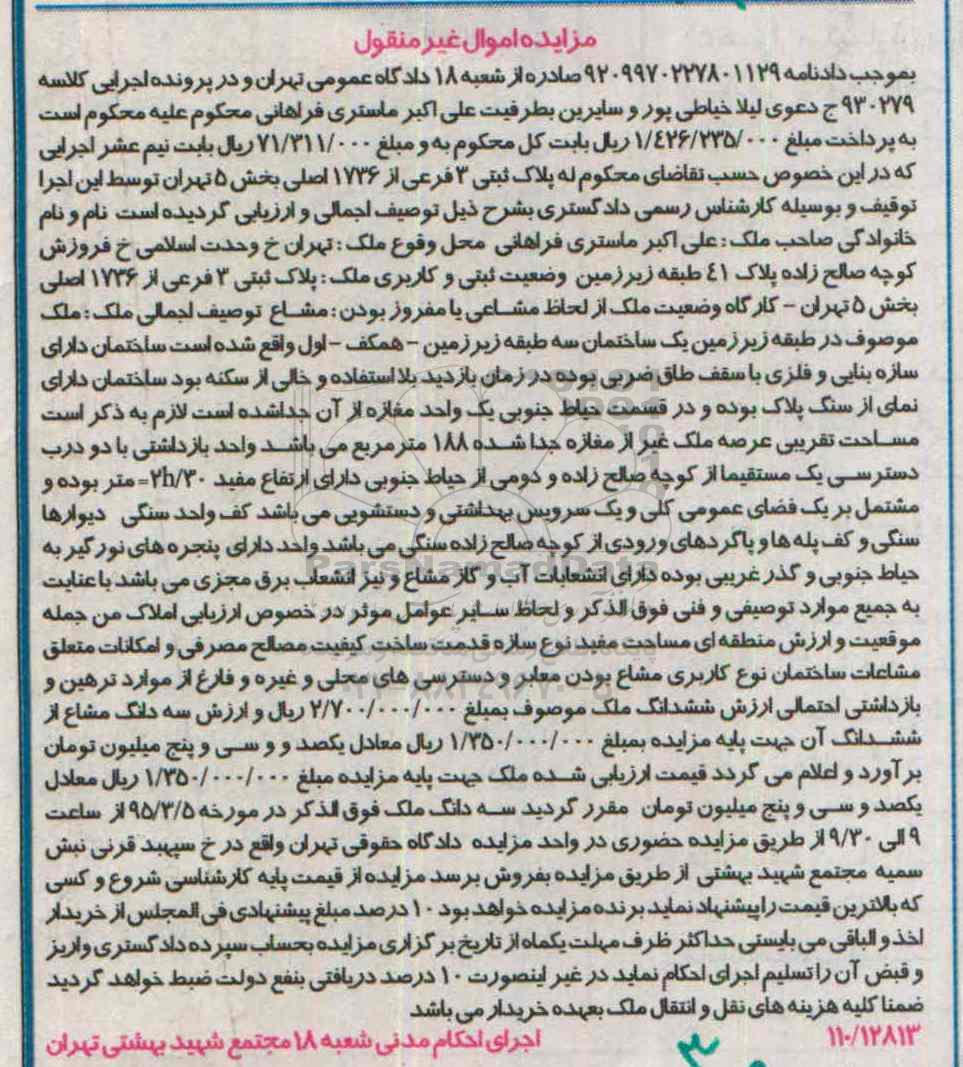 مزایده اموال غیر منقول
بموجب دادنامه ۹۲۰۹۹۷۰۲۲۷۸۰۱۱۲۹ صادره از شعبه ۱۸ دادگاه عمومی تهران و در پرونده اجرایی کلاسه
۹۳۰۲۷۹ ج دعوی لیلا خیاطی پور و سایرین بطرفیت علی اکبر ماستری فراهانی محکوم علیه محکوم است
به پرداخت مبلغ ۱/۴۲۶/۲۳۵/۰۰۰ ریال بابت کل محکوم به و مبلغ ۷۱/۳۱۱/۰۰۰ ریال بابت نیم عشر اجرایی
که در این خصوص حسب تقاضای محکوم له پلاک ثبتی ۳ فرعی از ۱۷۳۶ اصلی بخش ۵ تهران توسط این اجرا
توقیف و بوسیله کارشناس رسمی دادگستری بشرح ذیل توصیف اجمالی و ارزیابی گردیده است نام و نام
خانوادگی صاحب ملک : علی اکبر ماستری فراهانی محل وقوع ملک : تهران خ وحدت اسلامی خ فروزش
کوچه صالح زاده پلاک ۴۱ طبقه زیرزمین وضعیت ثبتی و کاربری ملک : پلاک ثبتی ۳ فرعی از ۱۷۳۶ اصلی
بخش ۵ تهران - کارگاه وضعیت ملک از لحاظ مشاعی یا مفروز بودن : مشاع توصیف اجمالی ملک : ملک
موصوف در طبقه زیرزمین یک ساختمان سه طبقه زیرزمین - همکف - اول واقع شده است ساختمان دارای
سازه بنایی و فلزی با سقف طاق ضربی بوده در زمان بازدید بلا استفاده و خالی از سکنه بود ساختمان دارای
نمای از سنگ پلاک بوده و در قسمت حیاط جنوبی یک واحد مغازه از آن جدا شده است لازم به ذکر است
مساحت تقریبی عرصه ملک غیر از مغازه جدا شده ۱۸۸ متر مربع می باشد واحد بازداشتی با دو درب
دسترسی یک مستقیما از کوچه صالح زاده و دومی از حیاط جنوبی دارای ارتفاع مفید ۲h/۳۰= متر بوده و
مشتمل بر یک فضای عمومی کلی و یک سرویس بهداشتی و دستشویی می باشد کف واحد سنگی دیوارها
سنگی و کف پله ها و پاگردهای ورودی از کوچه صالح زاده سنگی می باشد واحد دارای پنجره های نورگیر به
حیاط جنوبی و گذر غریبی بوده دارای انشعابات آب و گاز مشاع و نیز انشعاب برق مجزی می باشد با عنایت
به جمیع موارد توصیفی و فنی فوق الذکر و لحاظ سایر عوامل موثر در خصوص ارزیابی املاک من جمله
موقعیت و ارزش منطقه ای مساحت مفید نوع سازه قدمت ساخت کیفیت مصالح مصرفی و امکانات متعلق
مشاعات ساختمان نوع کاربری مشاع بودن معابر و دسترسی های محلی و غیره و فارغ از موارد ترهین و
بازداشتی احتمالی ارزش ششدانگ ملک موصوف بمبلغ ۲/۷۰۰/۰۰۰/۰۰۰ ریال و ارزش سه دانگ مشاع از
ششدانگ آن جهت پایه مزایده بمبلغ ۱/۳۵۰/۰۰۰/۰۰۰ ریال معادل یکصد و و سی و پنج میلیون تومان
برآورد و اعلام می گردد قیمت ارزیابی شده ملک جهت پایه مزایده مبلغ ۱/۳۵۰/۰۰۰/۰۰۰ ریال معادل
یکصد و سی و پنج میلیون تومان مقرر گردید سه دانگ ملک فوق الذکر در مورخه ۹۵/۳/۵ از ساعت
۹ الی ۹/۳۰ از طریق مزایده حضوری در واحد مزایده دادگاه حقوقی تهران واقع در خ سپهبد قرنی نبش
سمیه مجتمع شهید بهشتی از طریق مزایده بفروش برسد مزایده از قیمت پایه کارشناسی شروع و کسی
که بالاترین قیمت را پیشنهاد نماید برنده مزایده خواهد بود ۱۰ درصد مبلغ پیشنهادی فی المجلس از خریدار
اخذ و الباقی می بایستی حداکثر ظرف مهلت یکماه از تاریخ برگزاری مزایده بحساب سپرده دادگستری واریز
و قبض آن را تسلیم اجرای احکام نماید در غیر اینصورت ۱۰ درصد دریافتی بنفع دولت ضبط خواهد گردید
ضمنا کلیه هزینه های نقل و انتقال ملک بعهده خریدار می باشد
۱۱۰/۱۲۸۱۳ اجرای احکام مدنی شعبه ۱۸ مجتمع شهید بهشتی تهران
ParsNamadData